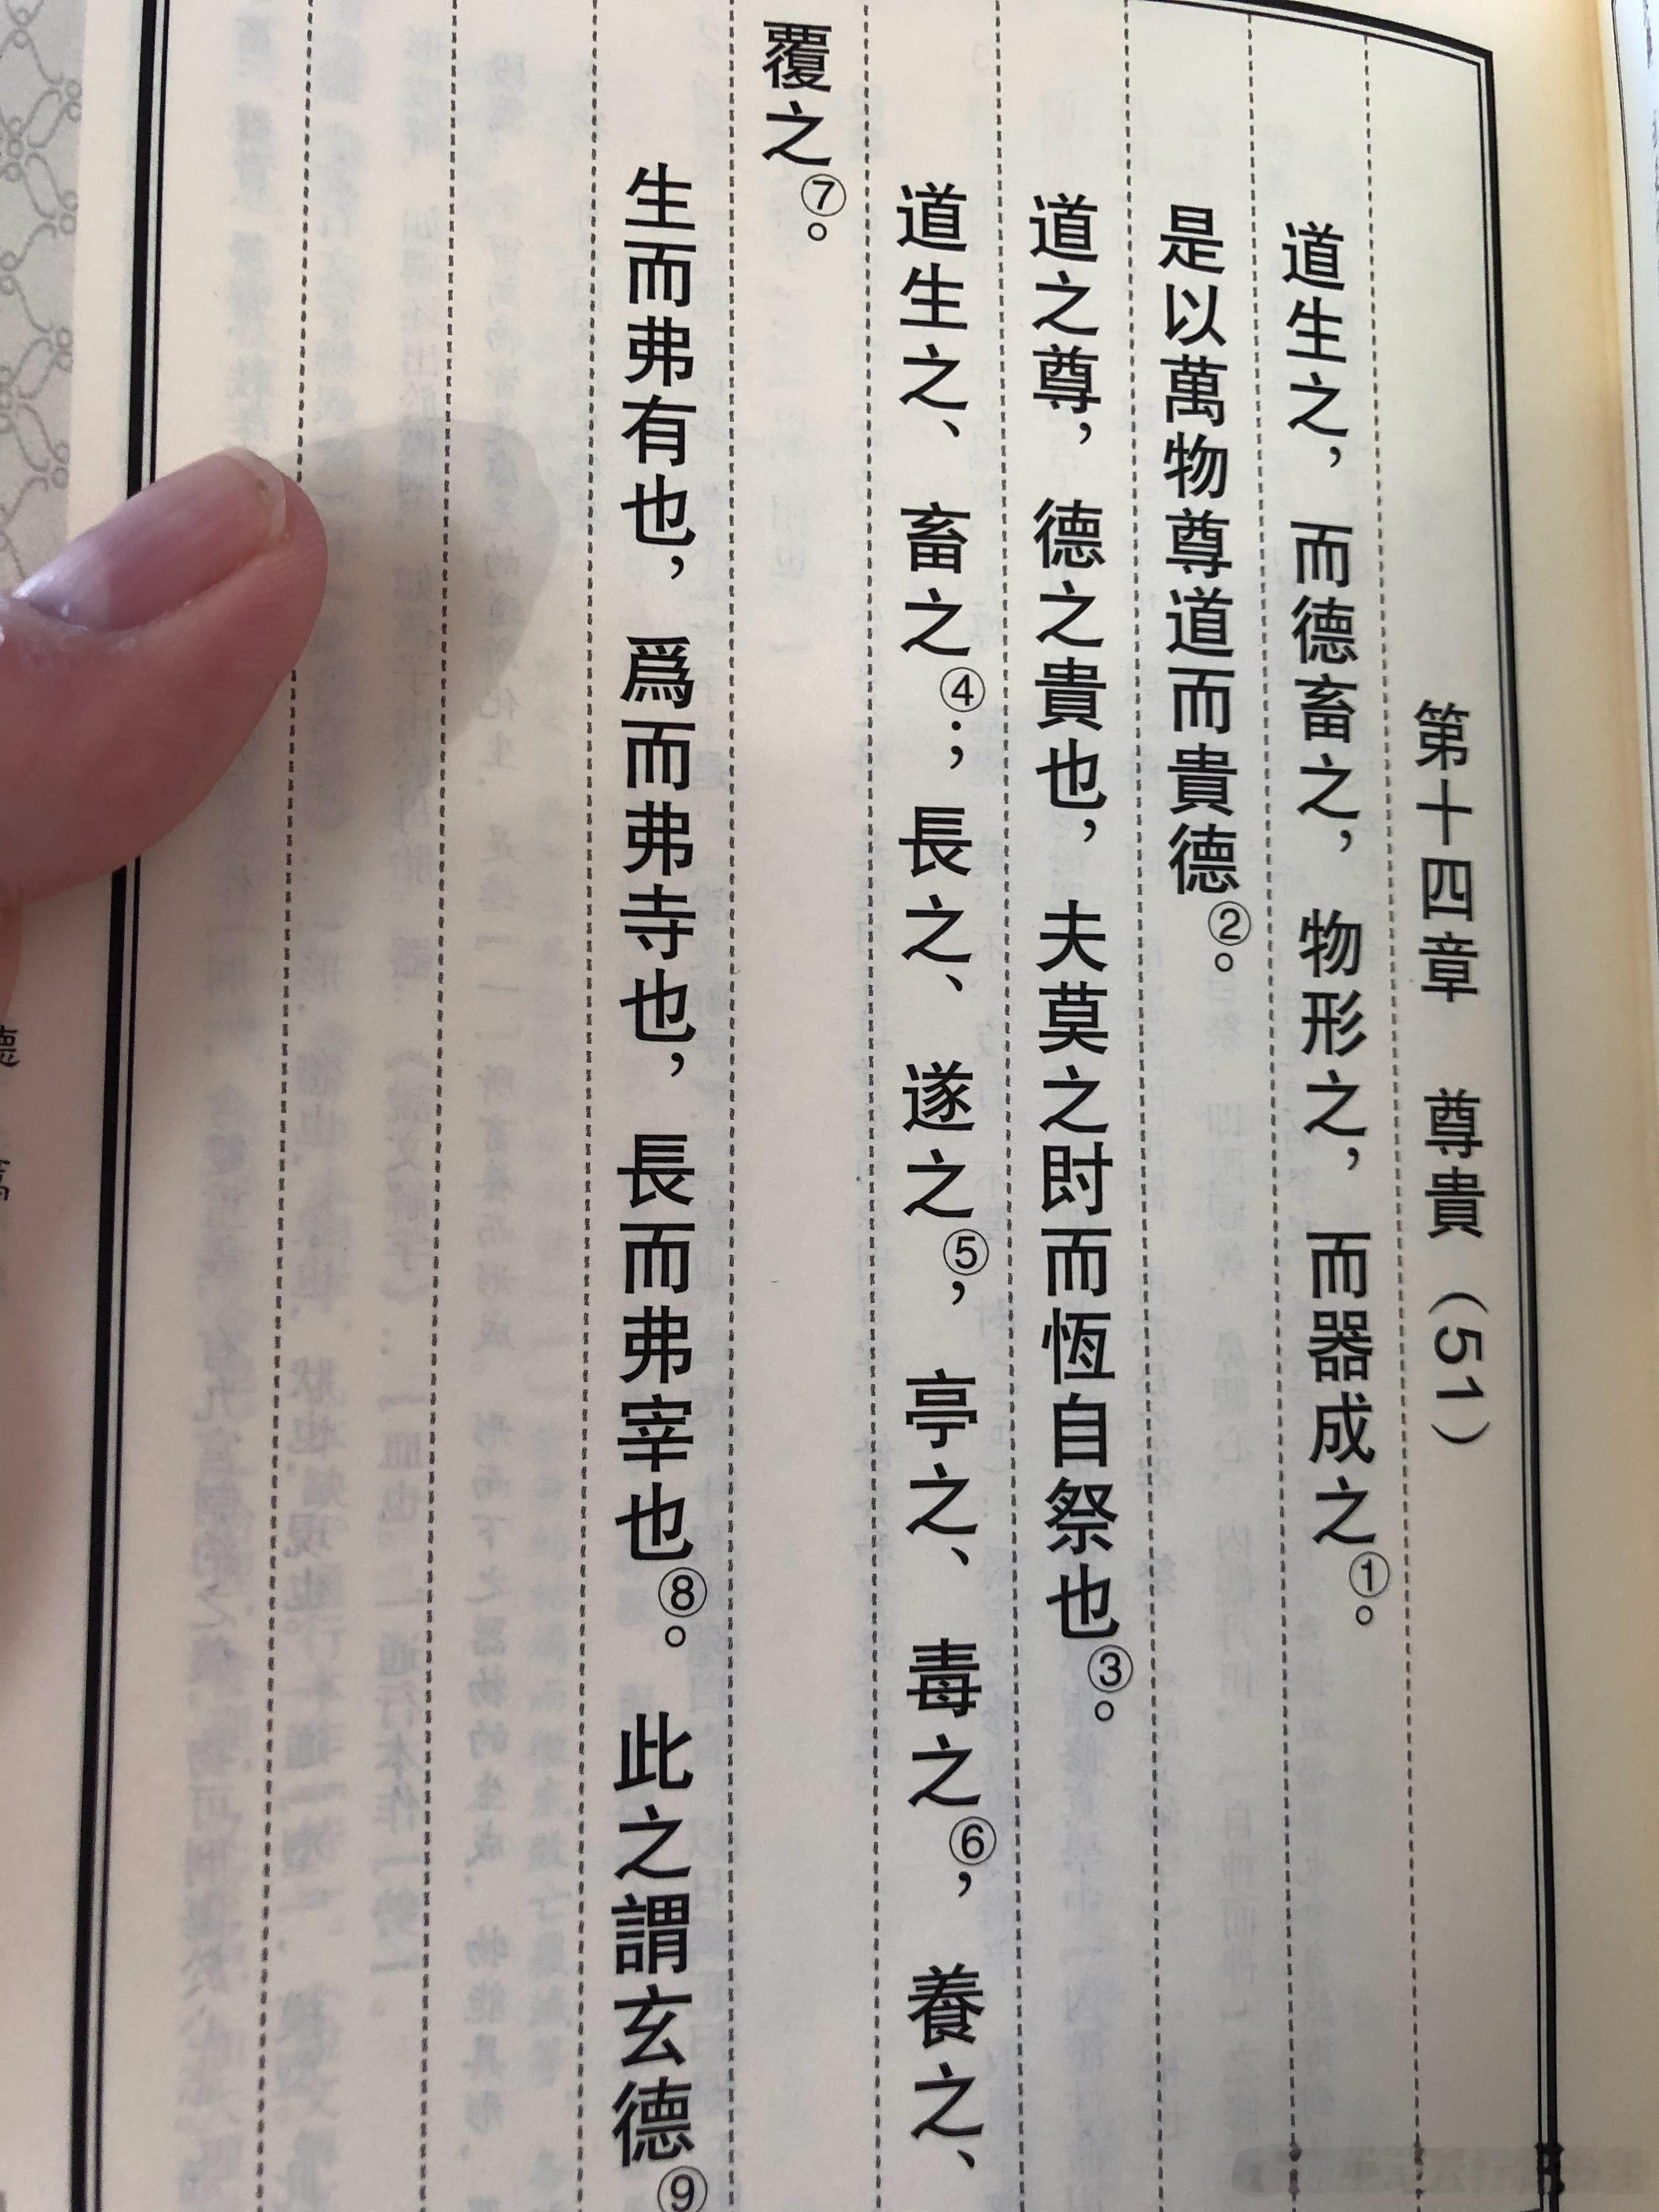 第十四章　尊貴（51）
道生之，而德畜之，物形之，而器成之①。
是以萬物尊道而貴德②。
道之尊，德之貴也，夫莫之㕁而恆自祭也③。
道生之、畜之④；長之、遂之⑤，亭之、毒之⑥，養之、
覆之⑦。
生而弗有也，爲而弗寺也，長而弗宰也⑧。此之謂玄德⑨